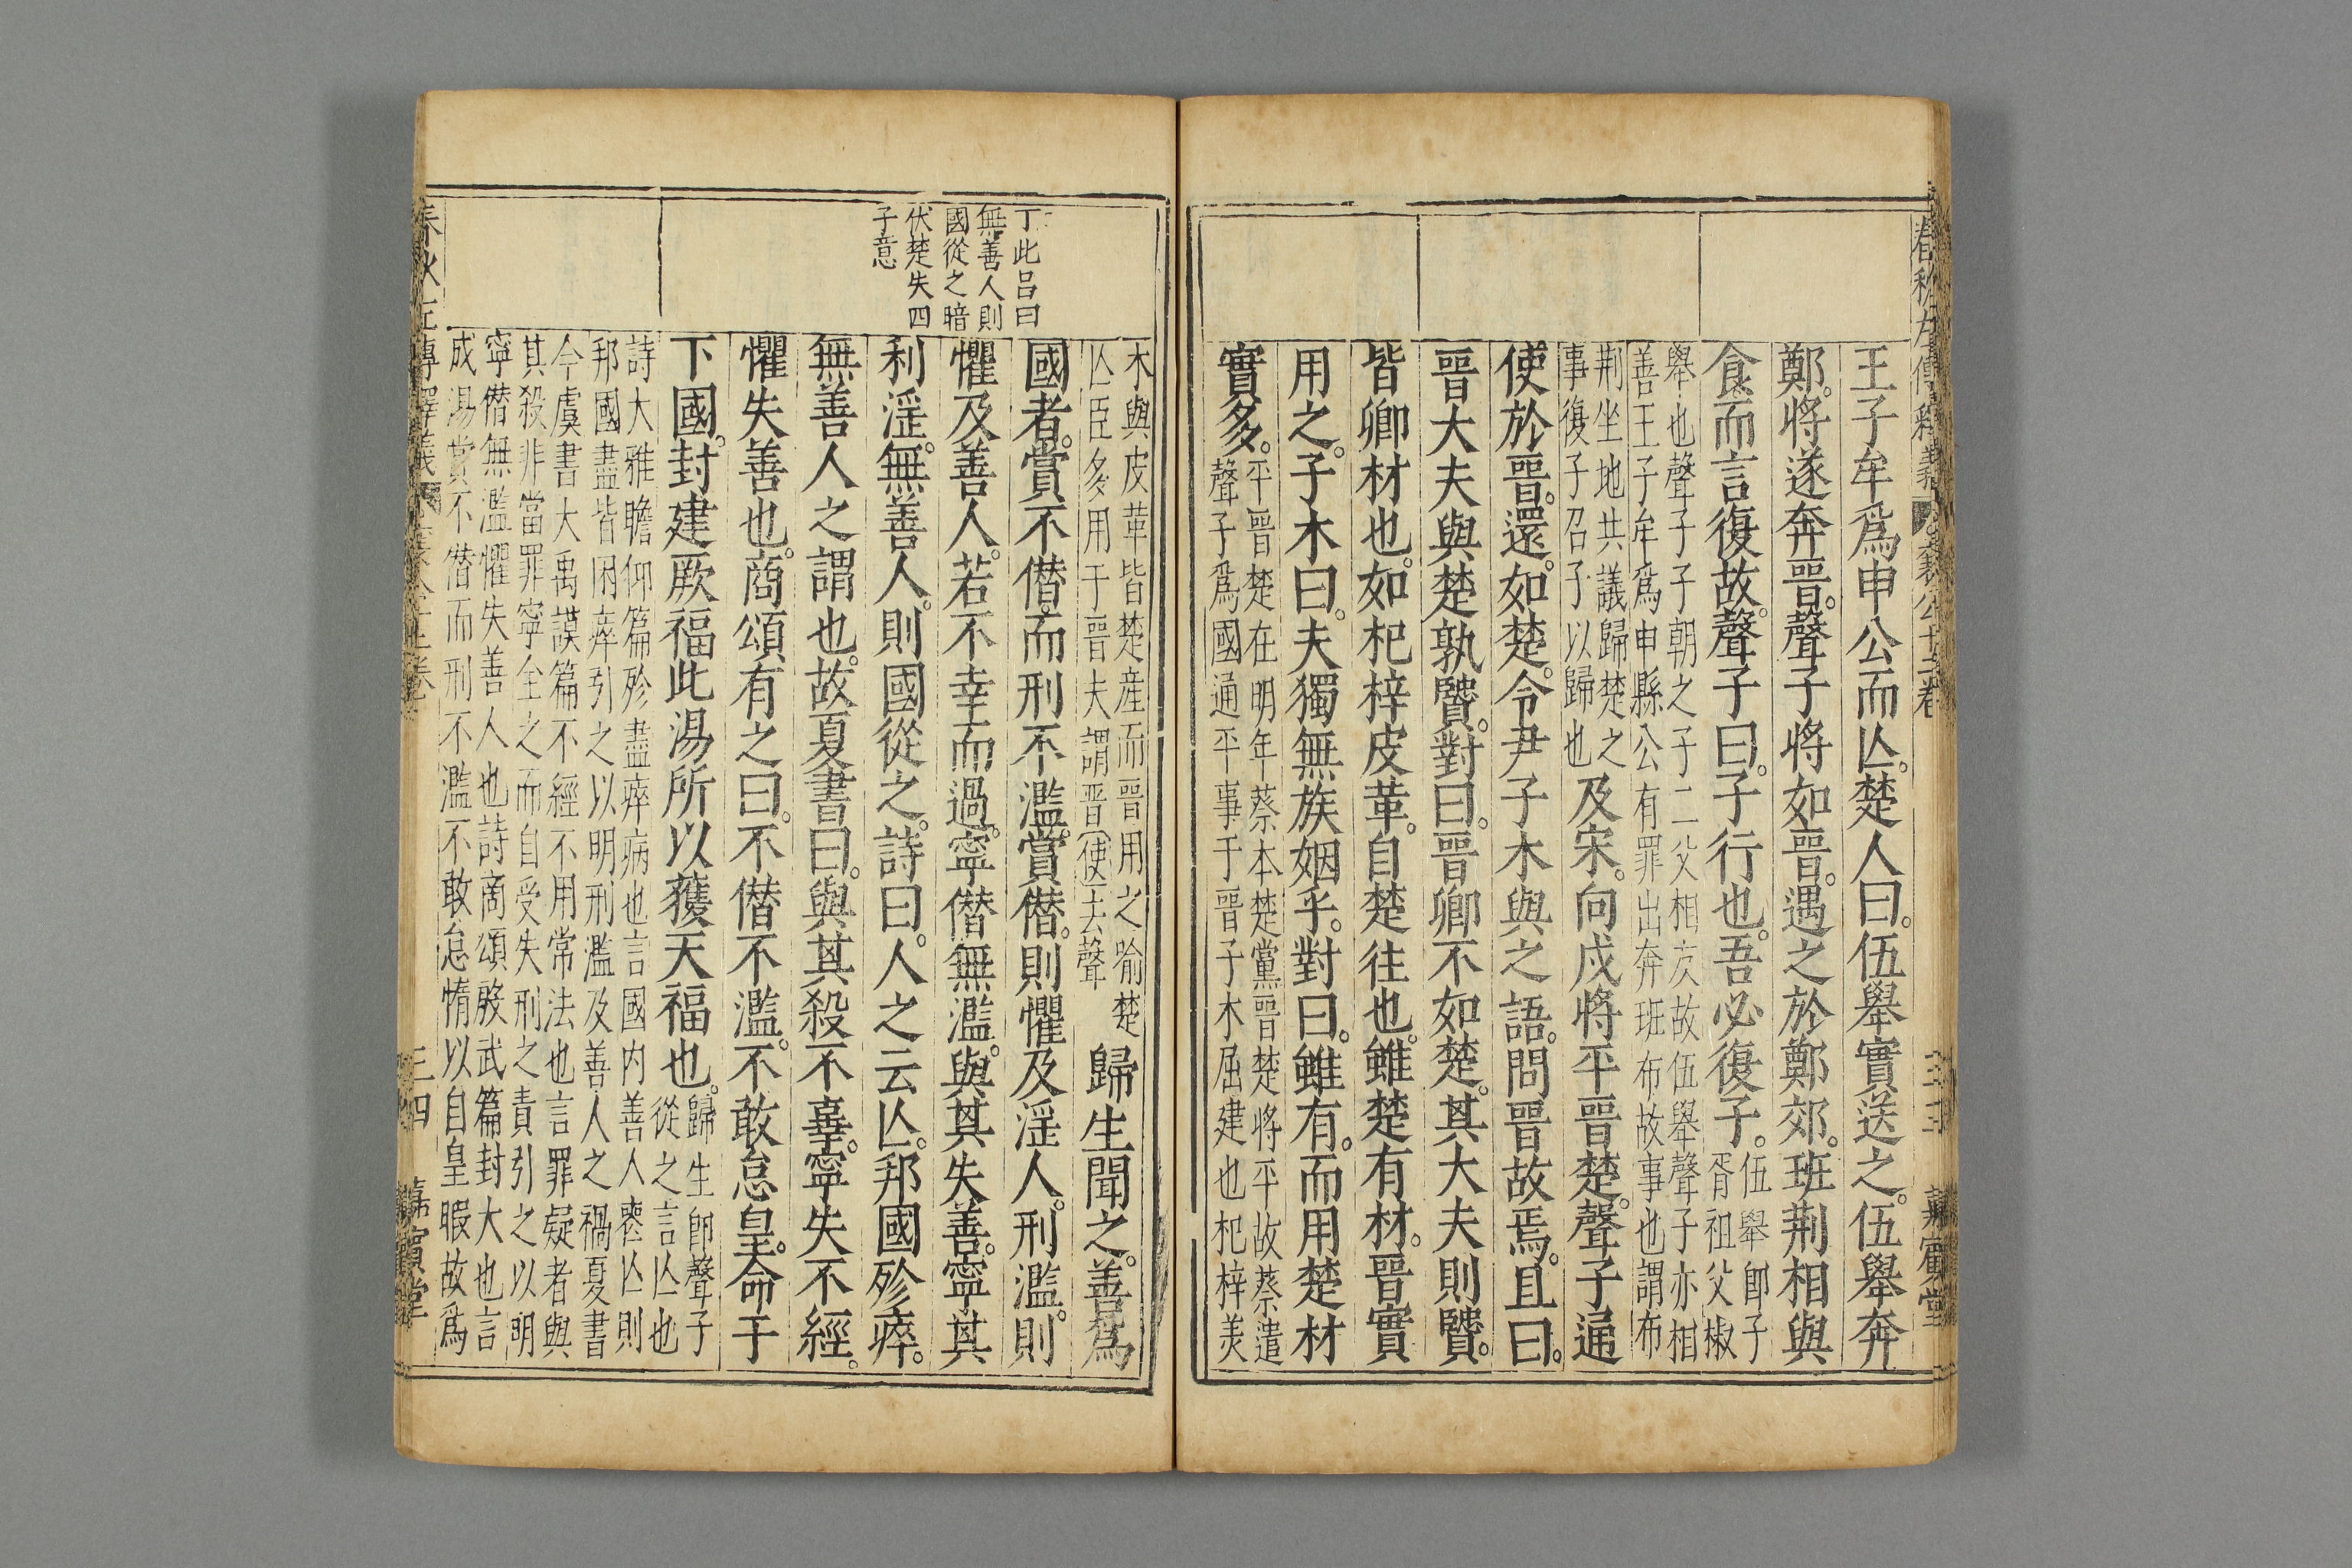 王子牟爲申公而亾。楚人曰。伍舉實送之。伍舉奔
鄭。將遂奔晉。聲子將如晉。遇之於鄭郊。班荆相與
食而言復故。聲子曰。子行也。吾必復子。伍舉即子
胥祖父椒
舉也聲子子朝之子二父相友故伍舉聲子亦相
善王子牟爲申縣公有罪出奔班布故事也謂布
荆坐地共議歸楚之
事復子召子以歸也
及宋。向戌將平晉楚。聲子通
使於晉。還。如楚。令尹子木與之語。問晉故焉。且曰。
晉大夫與楚孰賢。對曰。晉卿不如楚。其大夫則賢。
皆卿材也。如杞梓皮革。自楚往也。雖楚有材。晉實
用之。子木曰。夫獨無族姻乎。對曰。雖有。而用楚材
實多。
平晉楚在明年蔡本楚黨晉楚將平故蔡遣
聲子爲國通平事于晉子木屈建也杞梓美
木與皮革皆楚産而晉用之喻楚
亾臣多用于晉夫謂晋使去聲
歸生聞之。善爲
國者。賞不僭。而刑不濫。賞僭。則懼及淫人。刑濫。則
懼及善人。若不幸而過。寧僭無濫。與其失善。寧其
利淫。無善人。則國從之。詩曰。人之云亾。邦國殄瘁。
無善人之謂也。故夏書曰。與其殺不辜。寧失不經。
懼失善也。商頌有之曰。不僭不濫。不敢怠皇。命于
下國。封建厥福此湯所以獲天福也。
歸生即聲子
從之言亾也
詩大雅瞻仰篇殄盡瘁病也言國内善人喪亾則
邦國盡皆困瘁引之以明刑濫及善人之禍夏書
今虞書大禹謨篇不經不用常法也言罪疑者與
其殺非當罪寧全之而自受失刑之責引之以明
寧僭無濫懼失善人也詩商頌殷武篇封大也言
成湯賞不僭而刑不濫不敢怠惰以自皇暇故爲
丁此吕曰
無善人則
國從之暗
伏楚失四
子意
三四